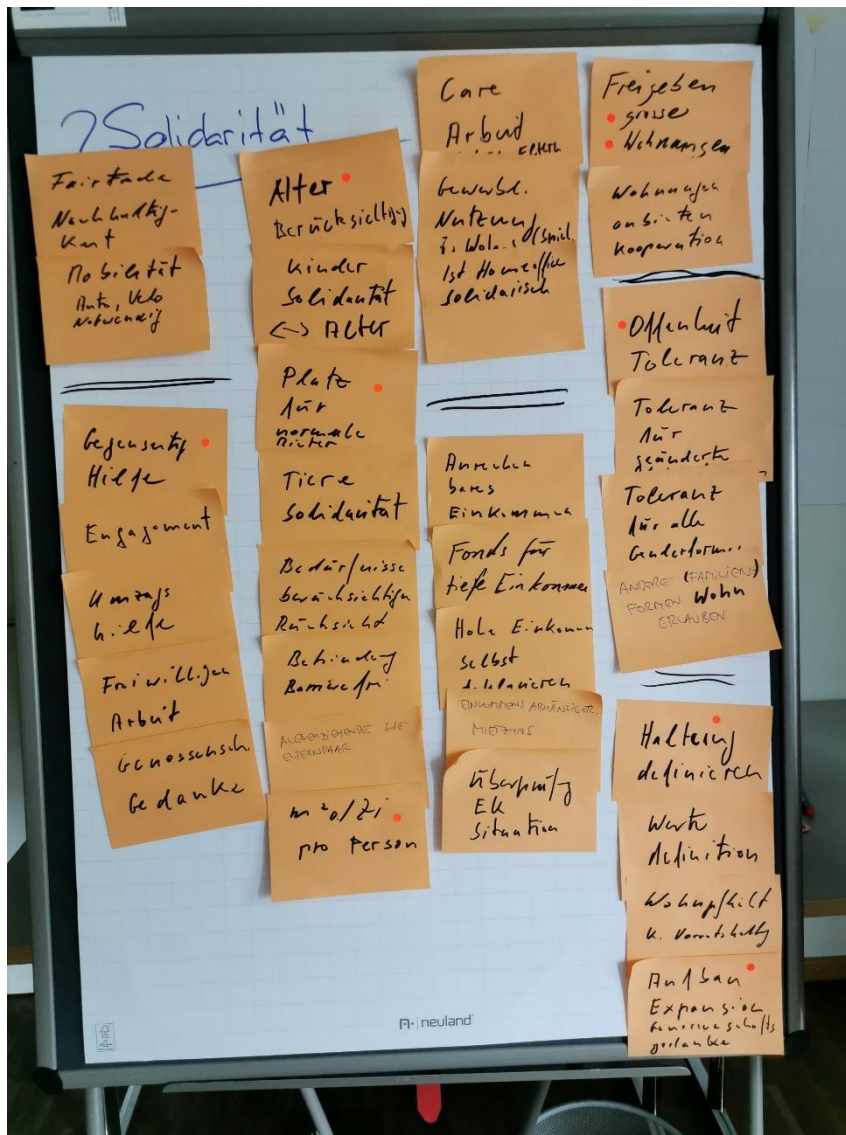 ? Solidarität
Fairtrade
Nachhaltig-
keit
Mobilität
Auto, Velo
Notwendig
Gegenseitig
Hilfe
Engagement
Umzugs
hilfe
Freiwilligen
Arbeit
Genossensch.
Gedanke
Alter
Berücksichtigg
Kinder
Solidarität
<-> Alter
Platz
für
normale
Mieter
Tiere
Solidarität
Bedürfnisse
berücksichtigen
Rücksicht
Behinderg
Barrierefrei
ALLEINERZIEHENDE WIE
ELTERNPAAR
m²o/Zi
pro Person
Care
Arbeit
Gewerbl.
Nutzung
Ist Homeoffice
solidarisch
Anrechen
bares
Einkommen
Fonds für
tiefe Einkommen
Hohe Einkommen
selbst
deklarieren
EINKOMMENS ABHÄNGIGER
MIETZINS
Überprüfg
EK
Situation
Freigeben
grosse
Wohnungen
Wohnungen
anbieten
Kooperation
Offenheit
Toleranz
Toleranz
für
geänderte
Toleranz
für alle
Genderformen
ANDERE (FAMILIEN)
FORMEN Wohn
ERLAUBEN
Haltung
definieren
Werte
definition
Wohnpflicht
k. Vorratshaltg
Aufbau
Expansion
gedanke
neuland